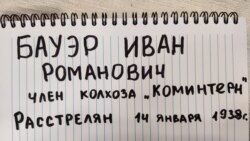 БАУЭР ИВАН
РОМАНОВИЧ
ЧЛЕН КОЛХОЗА „КОМИНТЕРН"
РАССТРЕЛЯН 14 ЯНВАРЯ 1938г.